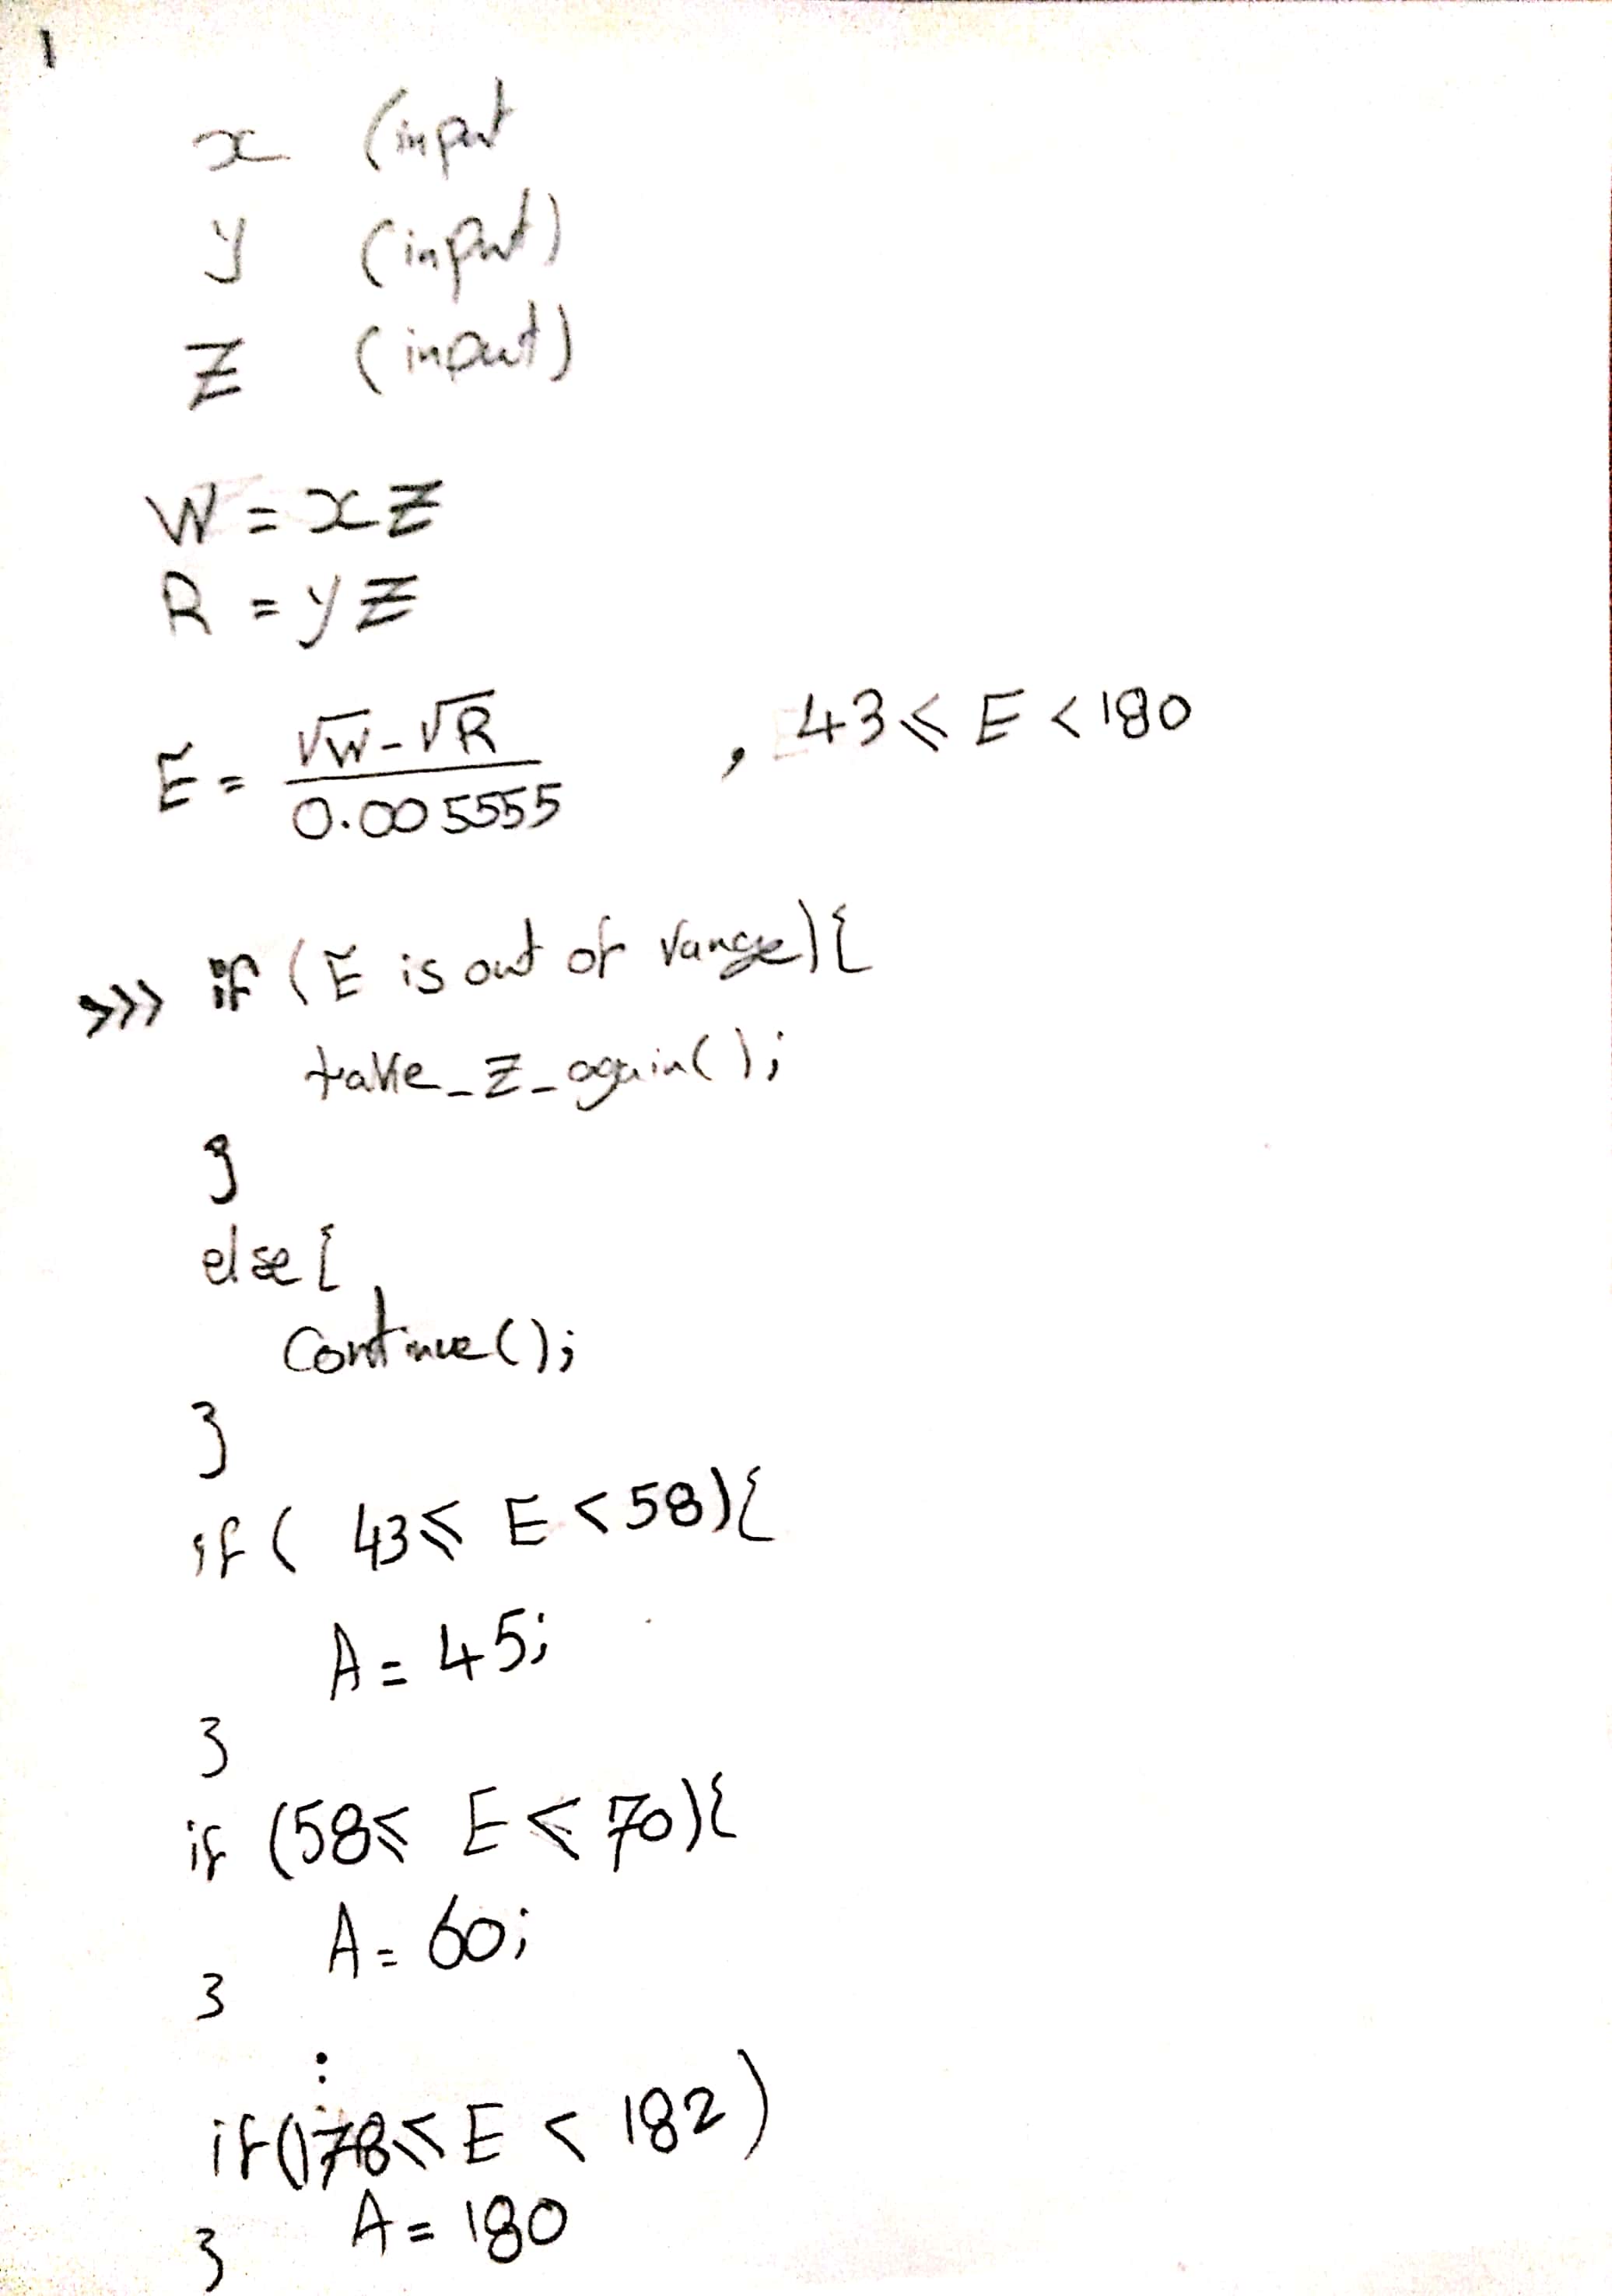 1
x (input
y (input)
z (input)
W = xz
R = yz
E = (√W - √R) / 0.005555 , 43 ⩽ E < 180
>>> if (E is out of range){
take_z_again();
}
else{
Continue();
}
if ( 43 ⩽ E < 58){
A = 45;
}
if (58 ⩽ E ⩽ 70){
A = 60;
}
⋮
if(178 ⩽ E < 182)
A = 180
}